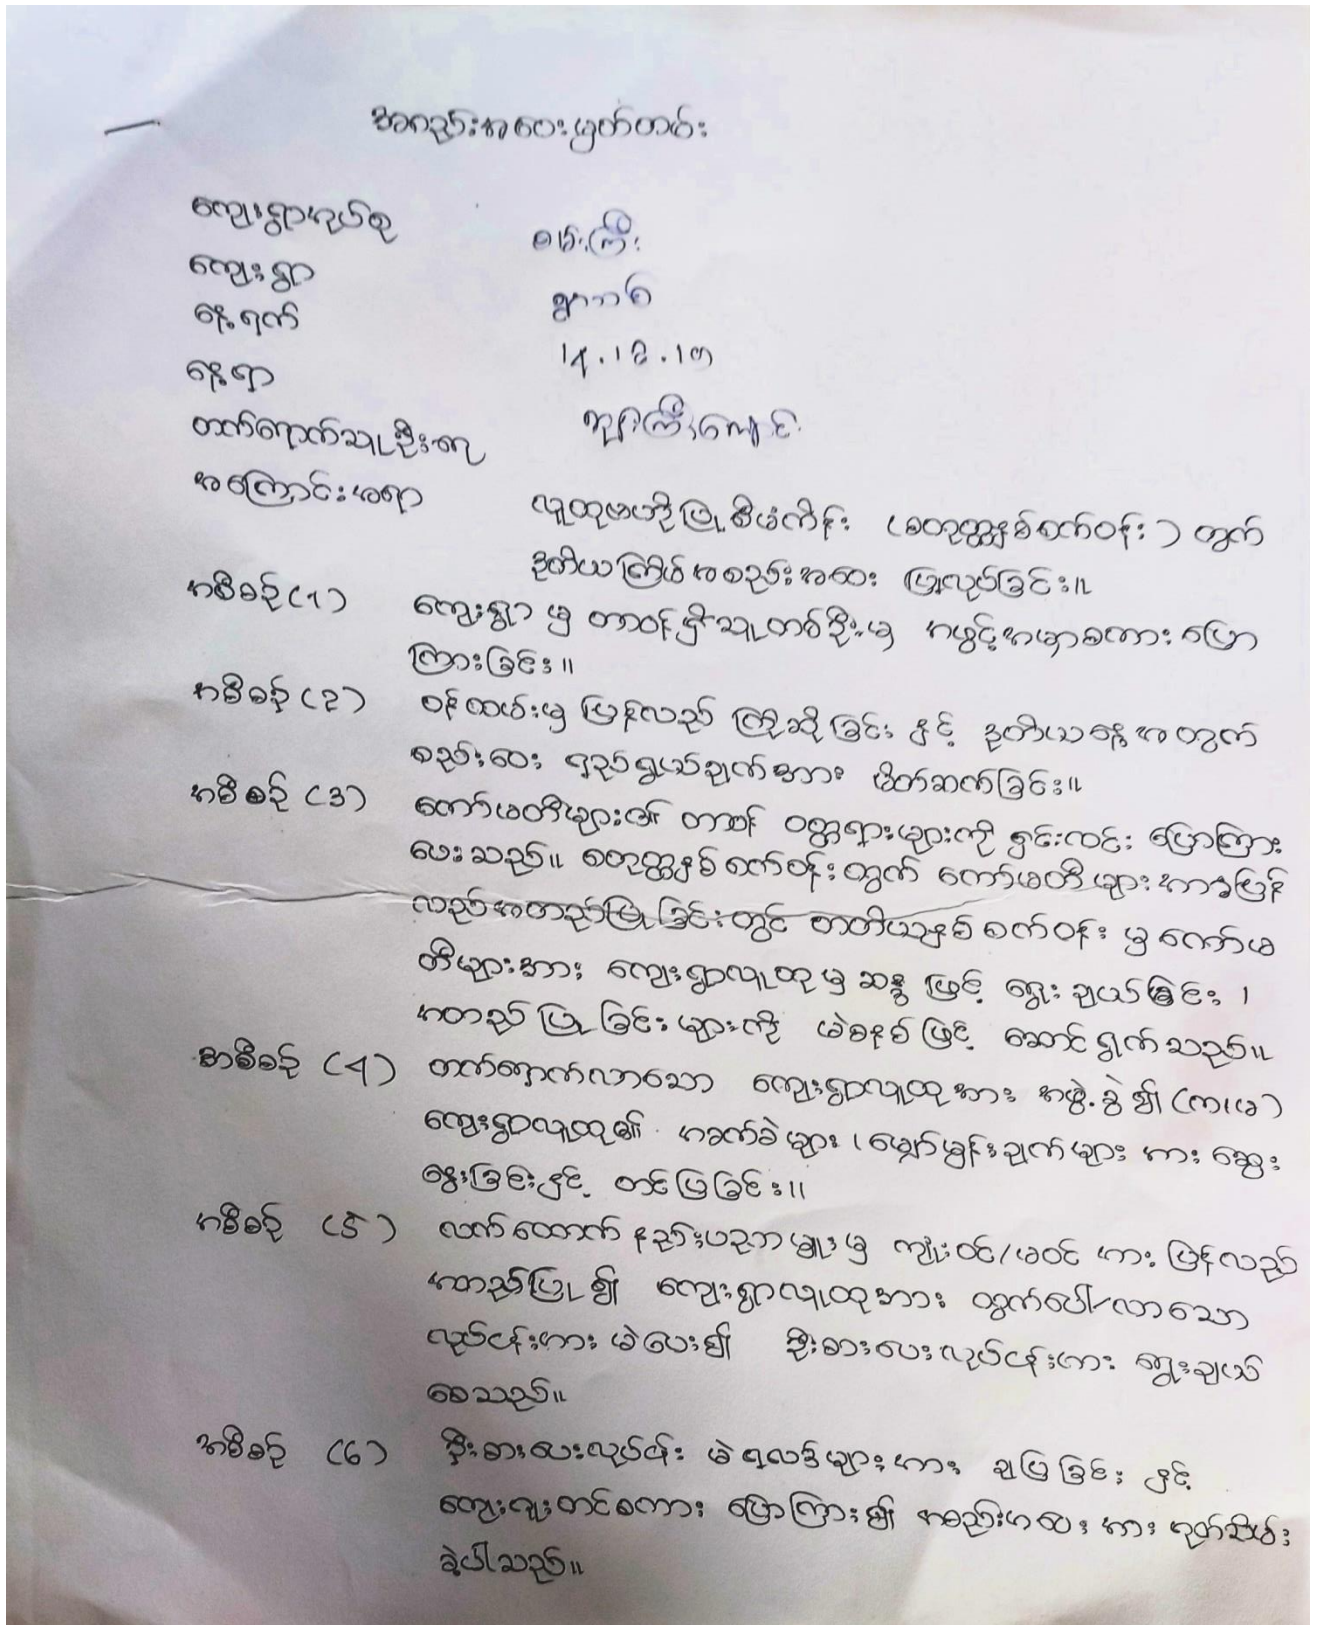 အစည်းအဝေးမှတ်တမ်း
ကျေးရွာအုပ်စု စမ်းကြီး
ကျေးရွာ ရွာသစ်
နေ့ရက်
နေ့ရာ
တက်ရောက်သူဦးရေ
အကြောင်းအရာ လူထုဗဟိုပြုစီမံကိန်း (စတုတ္ထနှစ်စက်ဝန်း) တွက်
ဒုတိယကြိမ်အစည်းအဝေး ပြုလုပ်ခြင်း။
အစီစဉ် (၁) ကျေးရွာ မှ တာဝန်ရှိသူတစ်ဦးမှ အဖွင့်အမှာစကား ပြော
ကြားခြင်း။
အစီစဉ် (၂) ဝန်ထမ်းမှ ပြန်လည် ကြိုဆိုခြင်း နှင့် ဒုတိယနေ့အတွက်
စည်းဝေး ရည်ရွယ်ချက်အား မိတ်ဆက်ခြင်း။
အစီစဉ် (၃) ကော်မတီများ၏ တာဝန် ဝတ္တရားများကို ရှင်းလင်း ပြောကြား
ပေးသည်။ စတုတ္ထနှစ်စက်ဝန်းတွက် ကော်မတီများအားပြန်
လည်အတည်ပြုခြင်းတွင် တတိယနှစ်စက်ဝန်း မှ ကော်မ
တီများအား ကျေးရွာလူထုမှ ဆန္ဒ ဖြင့် ရွေးချယ်ခြင်း ၊
အတည်ပြုခြင်းများကို မဲစနစ်ဖြင့် ဆောင်ရွက်သည်။
အစီစဉ် (၄) တက်ရောက်လာသော ကျေးရွာလူထုအား အဖွဲ့ခွဲ၍ (ကျ၊မ)
ကျေးရွာလူထု၏ အခက်ခဲများ ၊ မျှော်မှန်းချက်များ အား ဆွေး
နွေးခြင်းနှင့် တင်ပြခြင်း။
အစီစဉ် (၅) လက်ထောက် နည်းပညာမှူးမှ ကျုံးဝင်/မဝင် အား ပြန်လည်
အတည်ပြု၍ ကျေးရွာလူထုအား ထွက်ပေါ်လာသော
လုပ်ငန်းအား မဲပေး၍ ဦးစားပေးလုပ်ငန်းအား ရွေးချယ်
စေသည်။
အစီစဉ် (၆) ဦးစားပေးလုပ်ငန်း မဲရလဒ်များအား ချပြခြင်း နှင့်
ကျေးဇူးတင်စကား ပြောကြား၍ အစည်းအဝေးအား ရုတ်သိမ်း
ခဲ့ပါသည်။